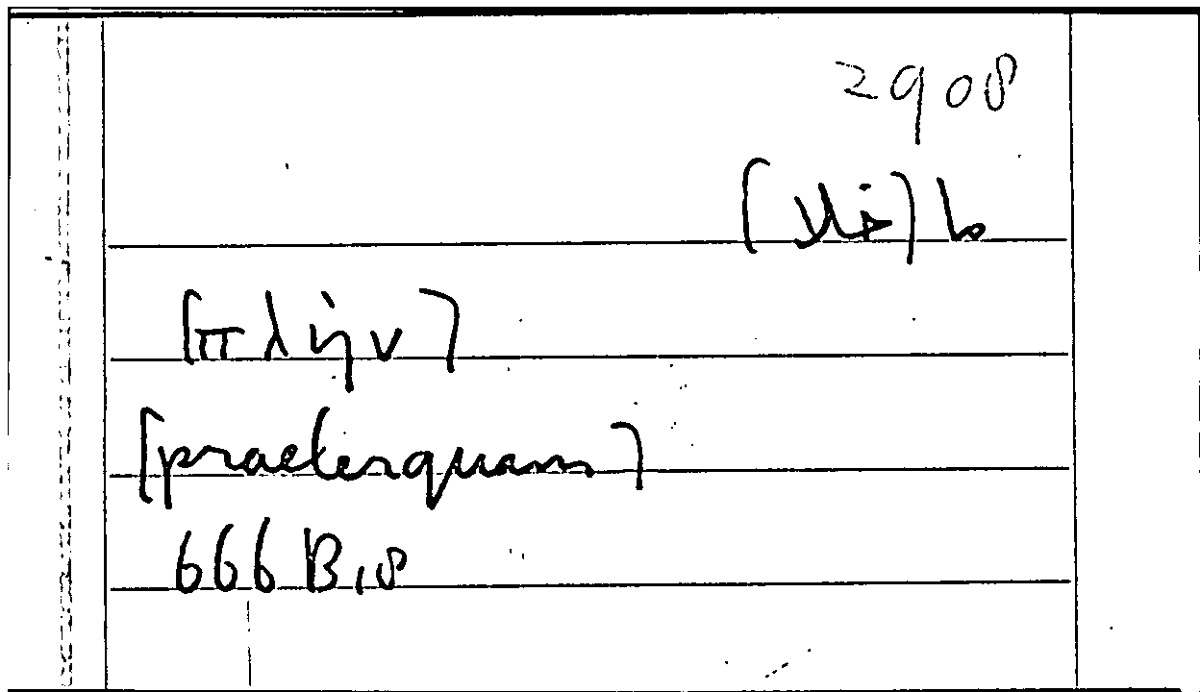 2908
[πλὴν]
[praeterquam]
666 B,8